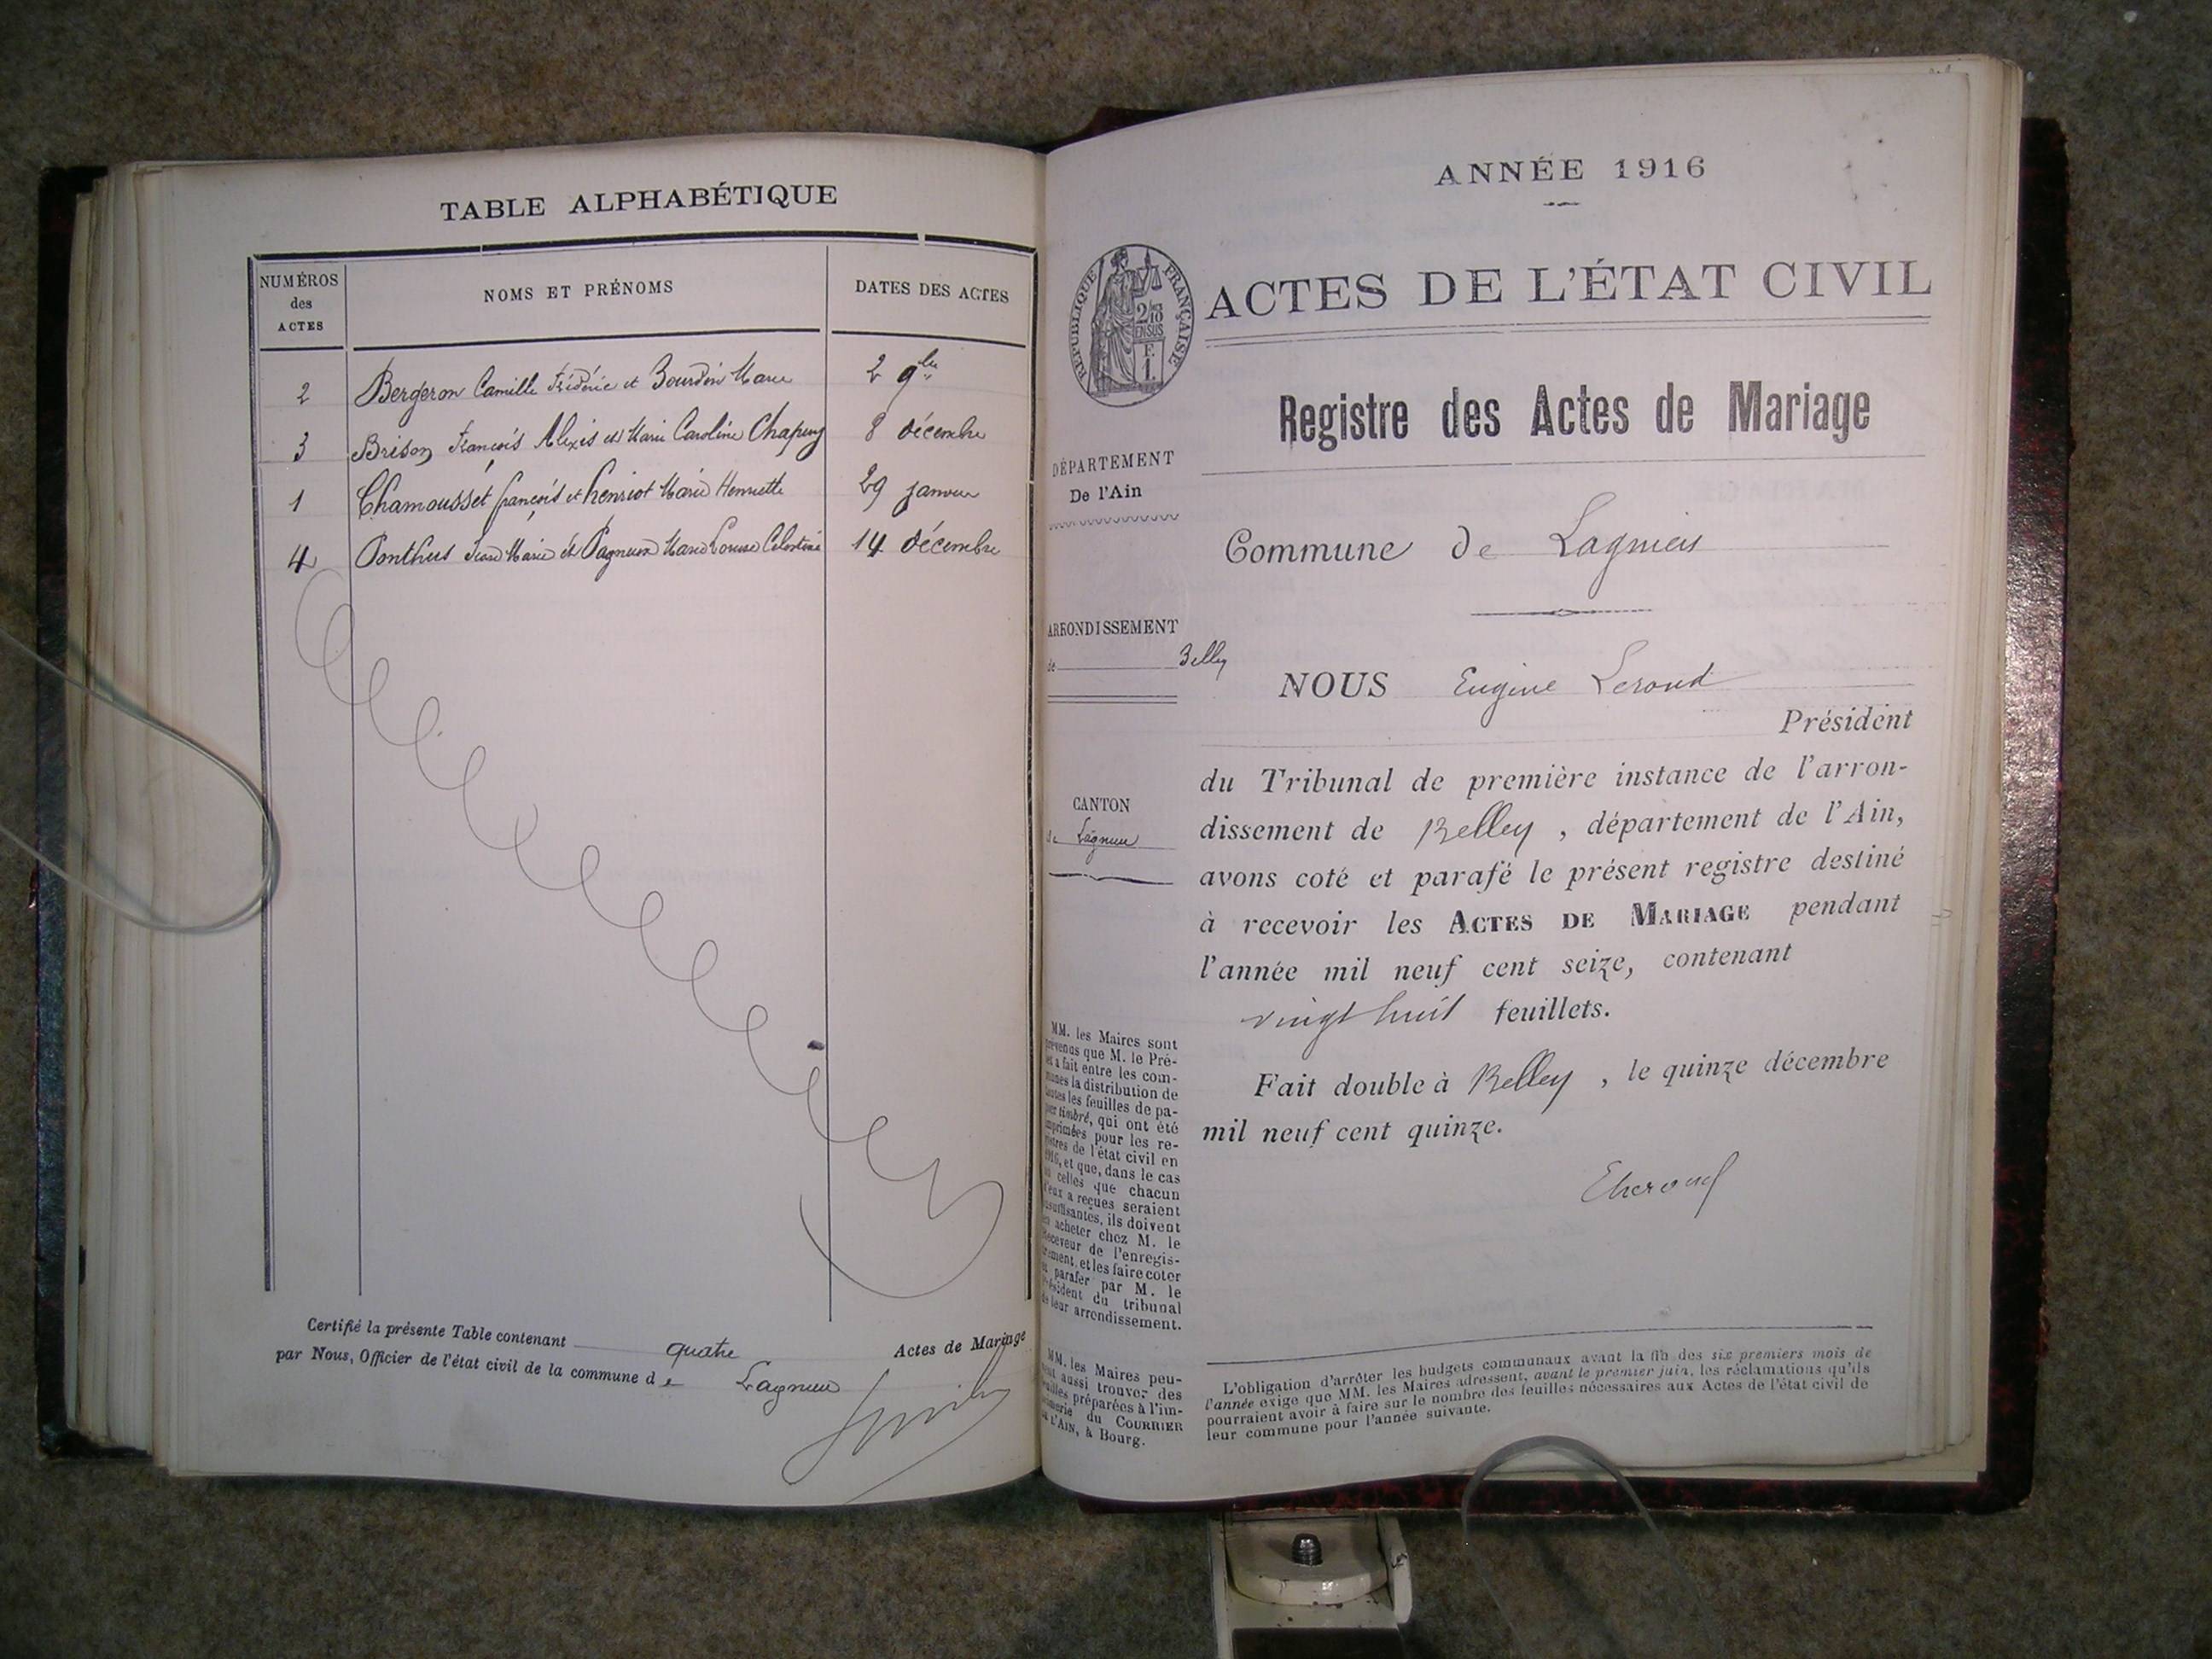 TABLE ALPHABÉTIQUE
NUMÉROS
des
ACTES
NOMS ET PRÉNOMS
DATES DES ACTES
2 Bergeron Camille Frédéric et Bourdin Marie 2 9bre
3 Brison François Alexis et Marie Caroline Chapuy 8 décembre
1 Chamousset françois et henriot Marie Henriette 29 janvier
4 Ponthus Jean Marie et Pagneux Marie Louise Célestine 14 décembre
Certifié la présente Table contenant quatre Actes de Mariage
par Nous, Officier de l'état civil de la commune de Lagnieu
ANNÉE 1916
RÉPUBLIQUE FRANÇAISE
2/10
EN SUS
F.
1.
ACTES DE L'ÉTAT CIVIL
Registre des Actes de Mariage
DÉPARTEMENT
De l'Ain
Commune de Lagnieu
ARRONDISSEMENT
de Belley
NOUS Eugène Leroud
Président
CANTON
de Lagnieu
du Tribunal de première instance de l'arron-
dissement de Belley, département de l'Ain,
avons coté et parafé le présent registre destiné
à recevoir les ACTES DE MARIAGE pendant
l'année mil neuf cent seize, contenant
vingt huit feuillets.
Fait double à Belley, le quinze décembre
mil neuf cent quinze.
ELeroud
MM. les Maires sont
prévenus que M. le Pré-
fet a fait entre les com-
munes la distribution de
toutes les feuilles de pa-
pier timbré, qui ont été
imprimées pour les re-
gistres de l'état civil en
1916, et que, dans le cas
où celles que chacun
d'eux a reçues seraient
insuffisantes, ils doivent
en acheter chez M. le
Receveur de l'enregis-
trement, et les faire coter
et parafer par M. le
Président du tribunal
de leur arrondissement.
MM. les Maires peu-
vent aussi trouver des
feuilles préparées à l'im-
primerie du COURRIER
DE L'AIN, à Bourg.
L'obligation d'arrêter les budgets communaux avant la fin des six premiers mois de
l'année exige que MM. les Maires adressent, avant le premier juin, les réclamations qu'ils
pourraient avoir à faire sur le nombre des feuilles nécessaires aux Actes de l'état civil de
leur commune pour l'année suivante.